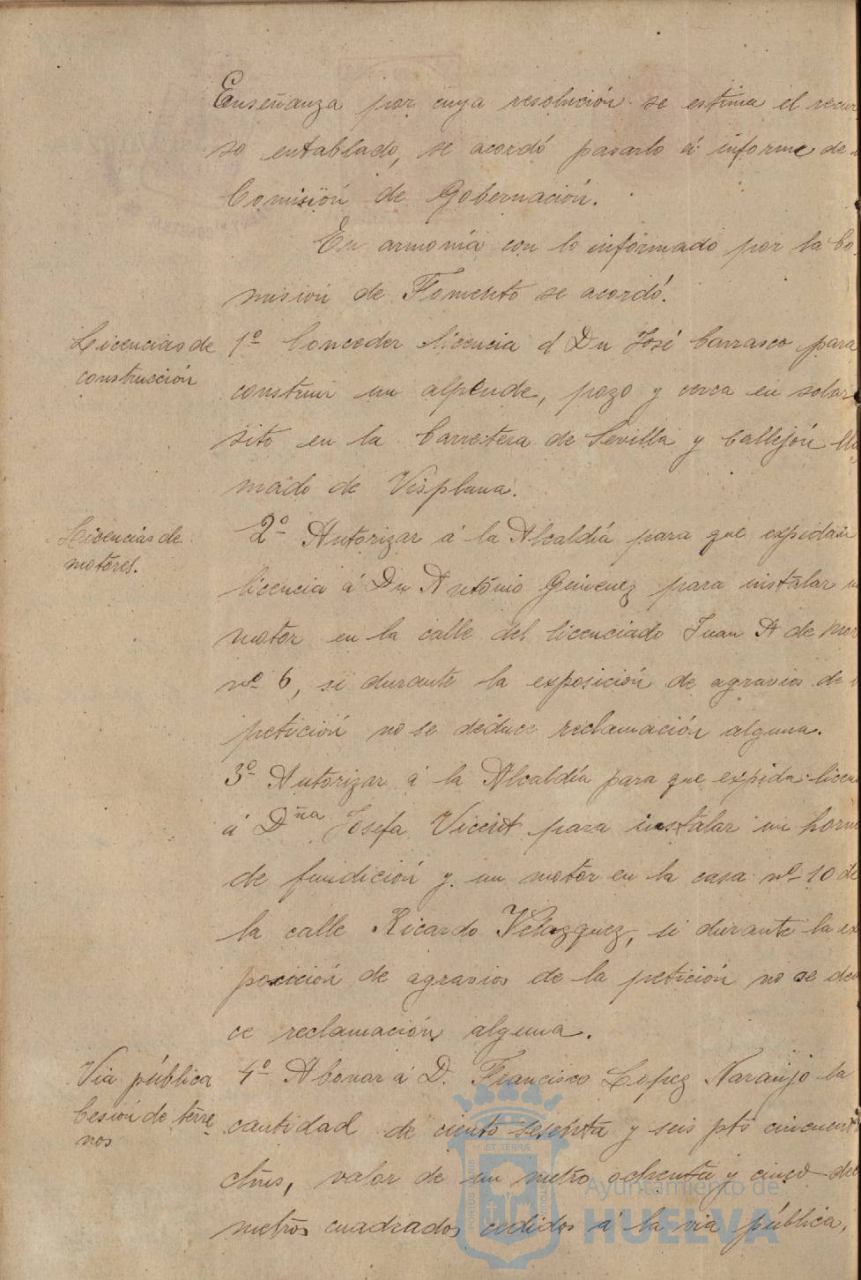 Enseñanza por cuya resolución se estima el recur
so entablado, se acordó pasarlo á informe de
Comisión de Gobernación.
En armonía con lo informado por la Co
misión de Fomento se acordó.
Licencias de
construcción
1º Conceder licencia á Dn José Carrasco para
construir un alpende, pozo y cerca en solar
sito en la Carretera de Sevilla y Callejón lla
mado de Visplana.
Licencias de
motores.
2º Autorizar á la Alcaldía para que expida
licencia á Dn Antonio Gimenez para instalar
motor en la calle del licenciado Juan A de Mor
nº 6, si durante la exposición de agravios de
petición no se deduce reclamación alguna.
3º Autorizar á la Alcaldía para que expida licen
á Dña Josefa para instalar un horno
de fundición y un motor en la casa nº 10 de
la calle Ricardo Velazquez, si durante la ex
posición de agravios de la petición no se dedu
ce reclamación alguna.
Via pública
Cesión de terre
nos
4º Abonar á D. Francisco Lopez Naranjo la
cantidad de ciento sesenta y seis pts cincuenta
ctms, valor de un metro ochenta y cinco dec
metros cuadrados cedidos á la via pública,
Ayuntamiento de
HUELVA